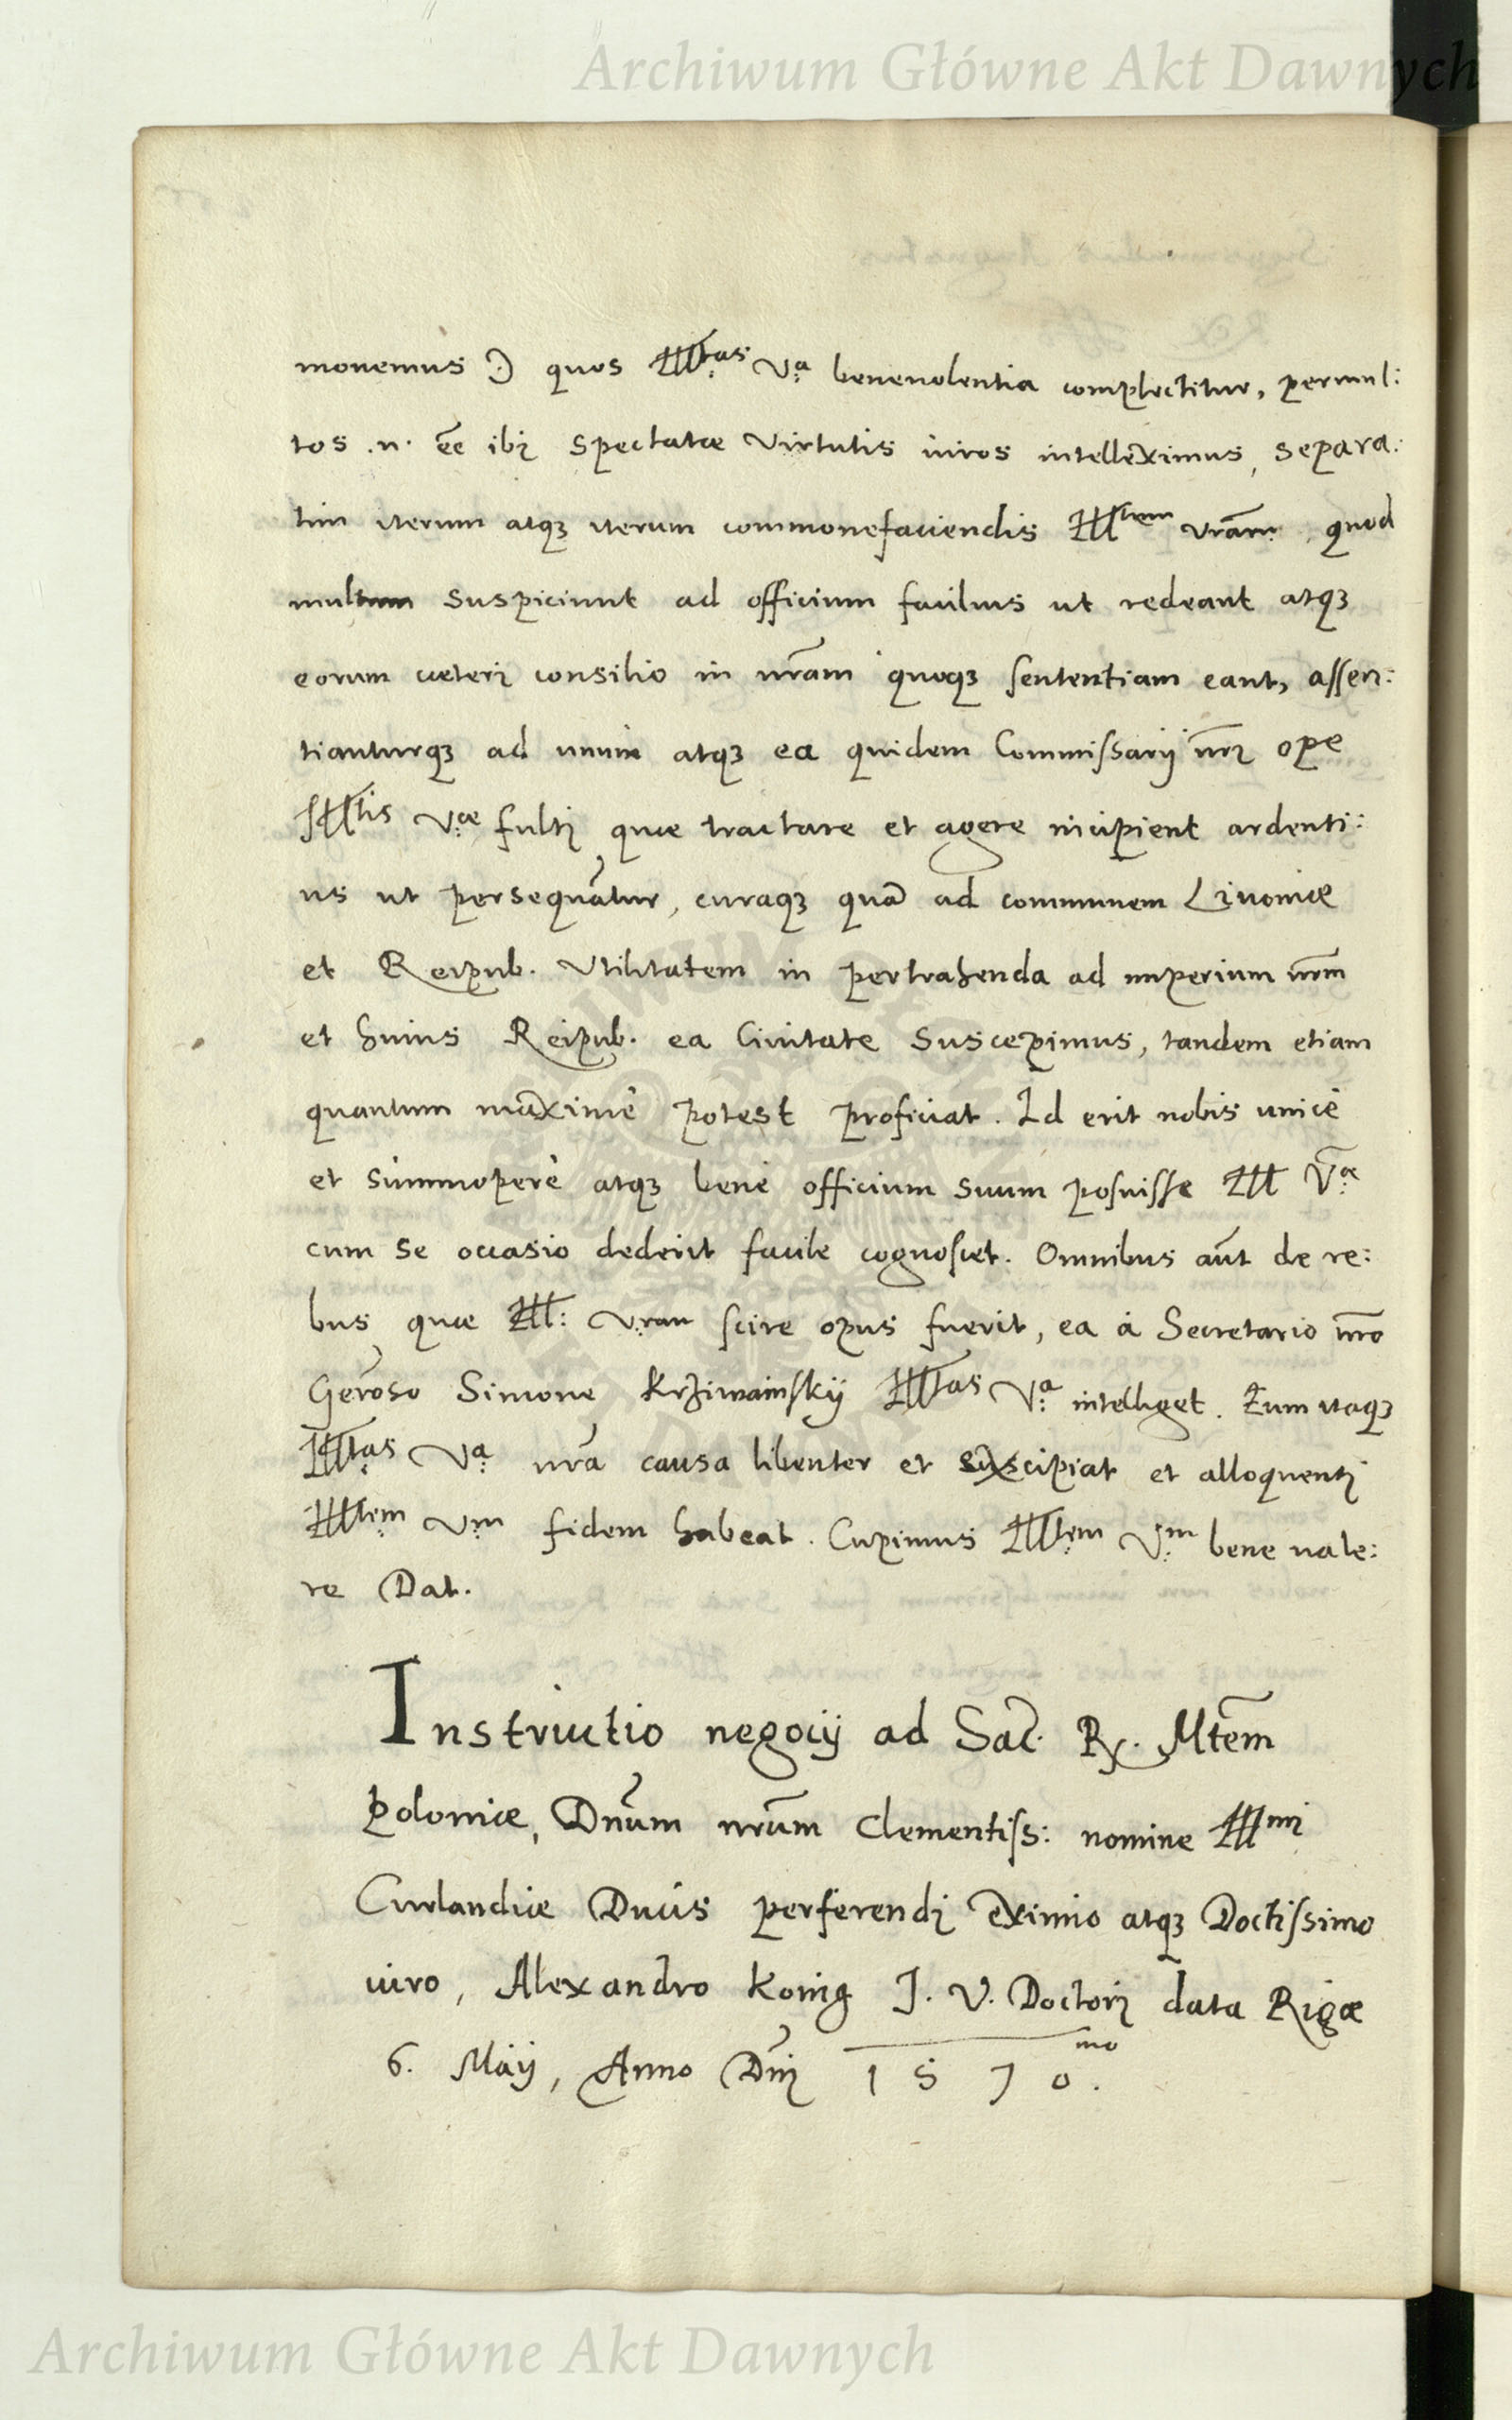 Archiwum Główne Akt Dawnych
monemus :) quos Illtas Va beneuolentia complectitur, permul:
tos .n. ee̅ ibi spectatæ Virtutis uiros intelleximus, separa:
tim iterum atqȝ iterum commonefaciendis Illtem vram̅, quod
multum suspiciunt ad officium facilius ut redeant atqȝ
eorum ceteri consilio in nr̅am quoqȝ sententiam eant, assen:
tianturqȝ ad unum atqȝ ea quidem Commissarij nr̅i ope
Illtis Væ fulti quæ tractare et agere incipient ardenti:
us ut persequa̅tur, curaqȝ qua̅ ad communem Liuoniæ
et Reipub. Vtilitatem in pertrahenda ad imperium nr̅m
et huius Reipub. ea Ciuitate suscepimus, tandem etiam
quantum maximè potest proficiat. Id erit nobis unicè
et summoperè atqȝ benè officium suum posuisse Ill V̅æ
cum se occasio dederit facile cognoscet. Omnibus au̅t de re:
bus quæ Ill: vram scire opus fuerit, ea à Secretario nr̅o
Gero̅so Simone Krziwainskij Illtas Va intelliget. Eum itaqȝ
Illtas Va nr̅a causa libenter et excipiat et alloquenti
Illtem Vm fidem habeat. Cupimus Illtem Vm bene uale:
re Dat.
Instructio negocij ad Sac̅. R. Mte̅m
Poloniæ, Dnu̅m nr̅um Clementiss: nomine Illmi
Curlandiæ Ducis perferendi eximio atqȝ Doctissimo
uiro, Alexandro Konig J. V. Doctori data Rigæ
6. Maij, Anno Dn̅i 1570mo.
Archiwum Główne Akt Dawnych